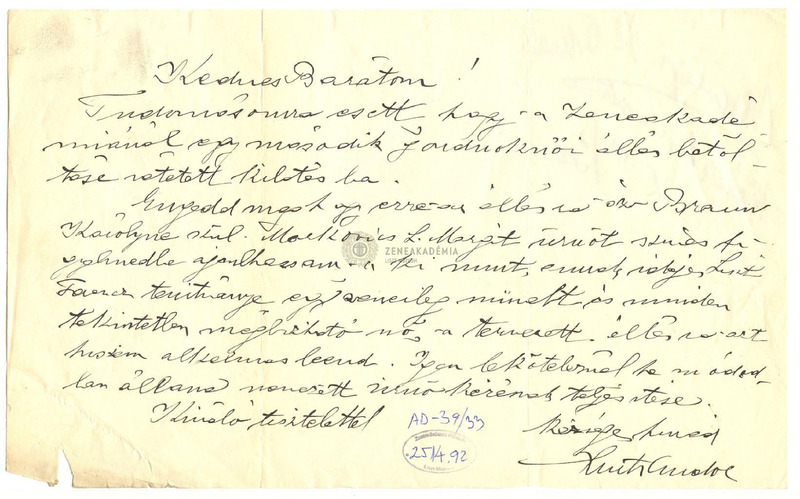 Kedves Barátom!
Tudomásomra esett hogy a Zeneakadé
miánál egy második gondnoknői állás betöl-
tése vétetett kilátásba.
Engedd meg hogy erre az állásra özv Braun
Károlyné szül. Markovics L. Margit úrnőt szíves fi-
gyelmedbe ajánlhassam - a ki mint, annak idején Liszt
Ferencz tanítványa egy zeneileg művelt és minden
tekintetben megbízható nő, a tervezett állásra azt
hiszem alkalmas leend. Igen leköteleznél ha módod-
ban állana nevezett úrnő kérésének teljesítése.
Kiváló tisztelettel
kész híved
ZENEAKADÉMIA
AD-39/33
25/4.92